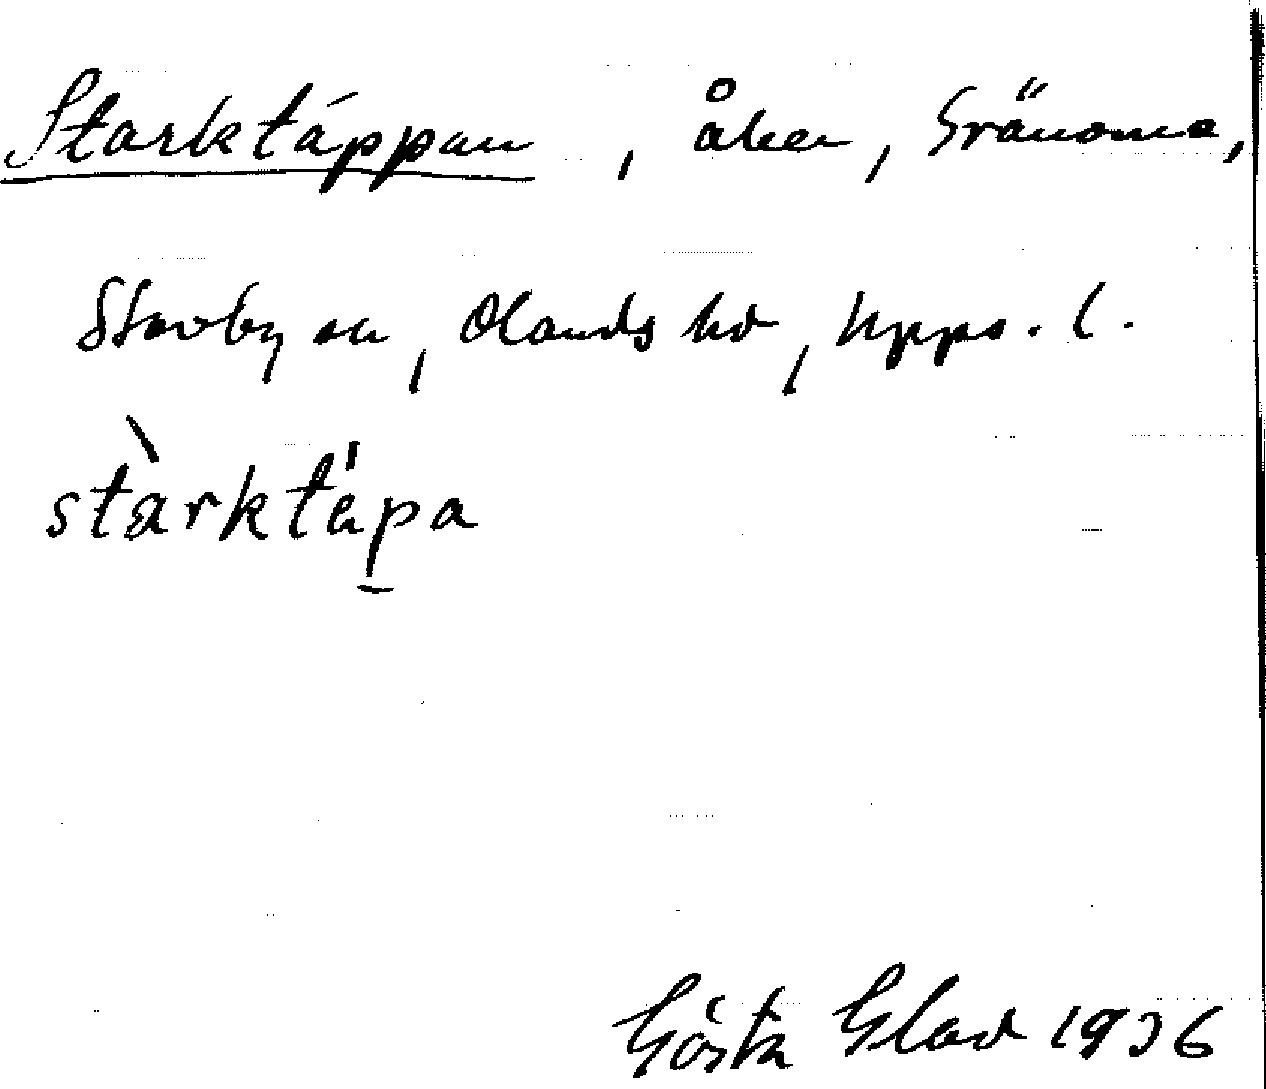 Starktäppan, åker, Gränoma,
Stavby sn, Olands hd, Upps. l.
stàrktäpa
Gösta Glad 1936